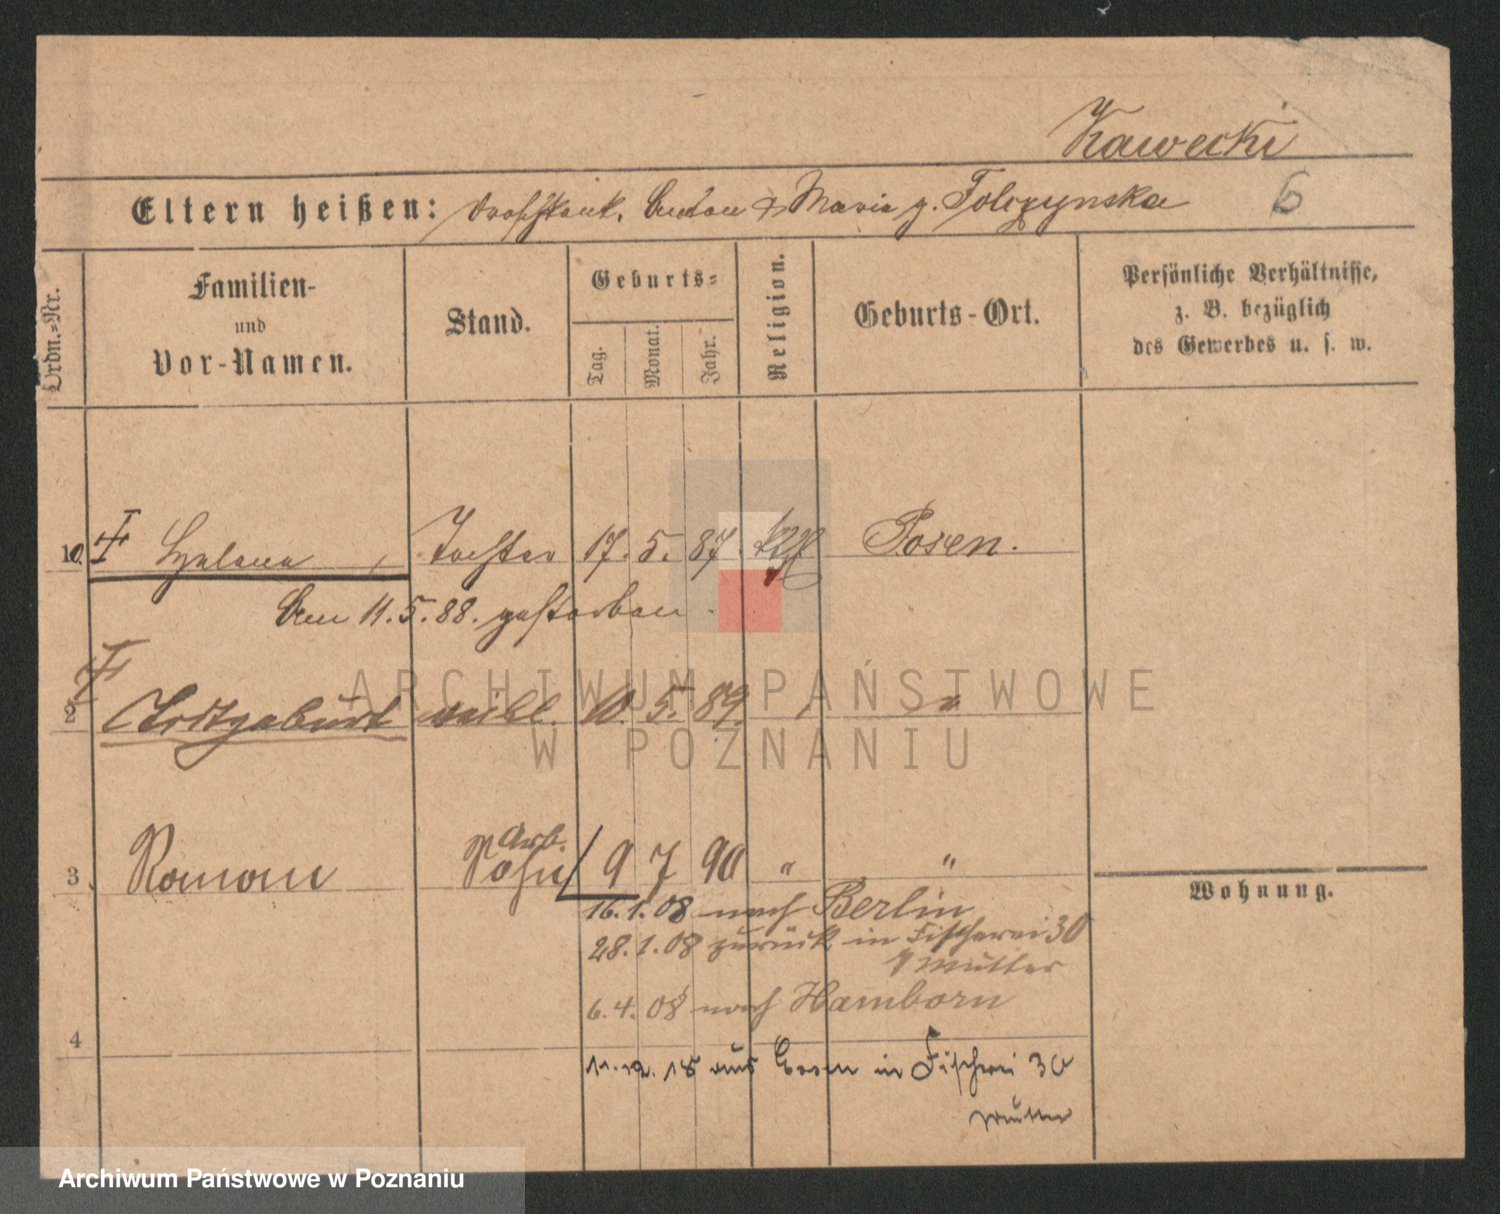 Kawecki
Eltern heißen: Droschkenk. Anton & Maria g. Tolczynska 6
Ordn.-Nr.
Familien-
und
Vor-Namen.
Stand.
Geburts-
Tag.
Monat.
Jahr.
Religion.
Geburts-Ort.
Persönliche Verhältnisse,
z. B. bezüglich
des Gewerbes u. s. w.
10. Helena, Tochter 17. 5. 87. kth Posen.
Am 11.5.88. gestorben.
2 Todtgeburt weibl. 10. 5. 89. "
Arb.
3 Roman Sohn 9 7 90 " "
Wohnung.
16.1.08 nach Berlin
28.1.08 zurück in Fischerei 30
Mutter
6.4.08 nach Hamborn
4
11.12.18 aus Essen in Fischerei 30
Mutter
ARCHIWUM PAŃSTWOWE
W POZNANIU
Archiwum Państwowe w Poznaniu